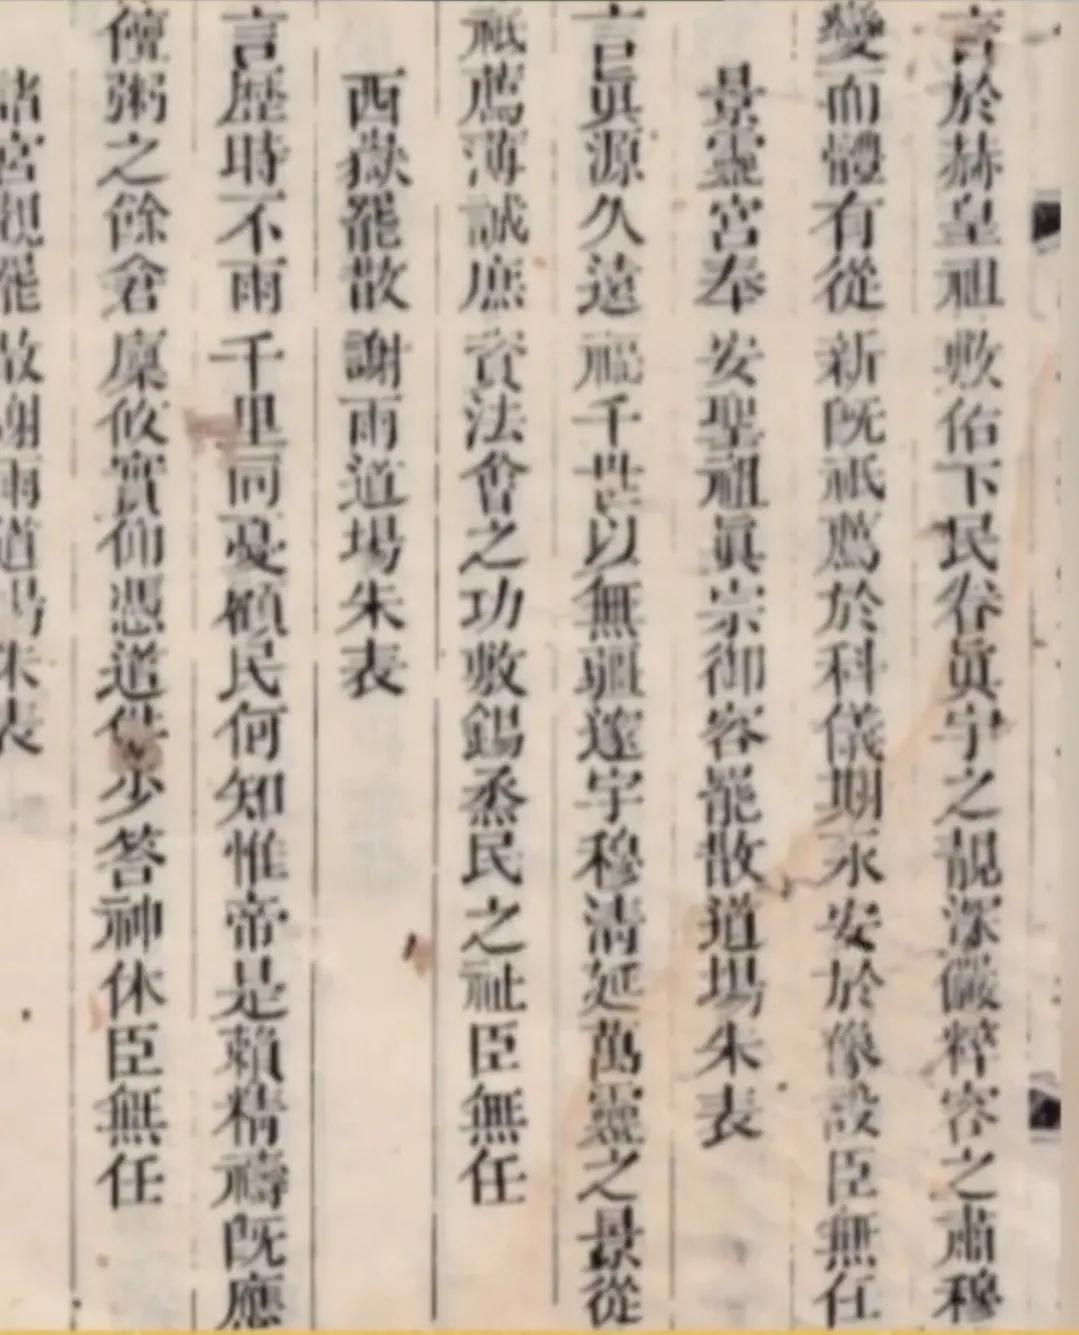 言於赫皇祖敷佑下民眷眞宇之靚深儼粹容之肅穆
變而體有從新旣祇薦於科儀期永安於像設臣無任
景靈宮奉安聖祖眞宗御容罷散道場朱表
言眞源久遠福千世以無疆邃宇穆清延萬靈之景從
祇薦薄誠庶資法會之功敷錫烝民之祉臣無任
西嶽罷散謝雨道場朱表
言歷時不雨千里同憂顧民何知惟帝是賴精禱旣應
饘粥之餘倉廩攸實仰憑道供少答神休臣無任
諸宮觀罷散謝雨道場朱表